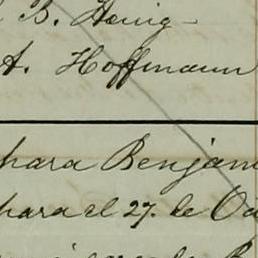 B. Hönig
A. Hoffmann
hara Benjam
hara el 27. de Oc